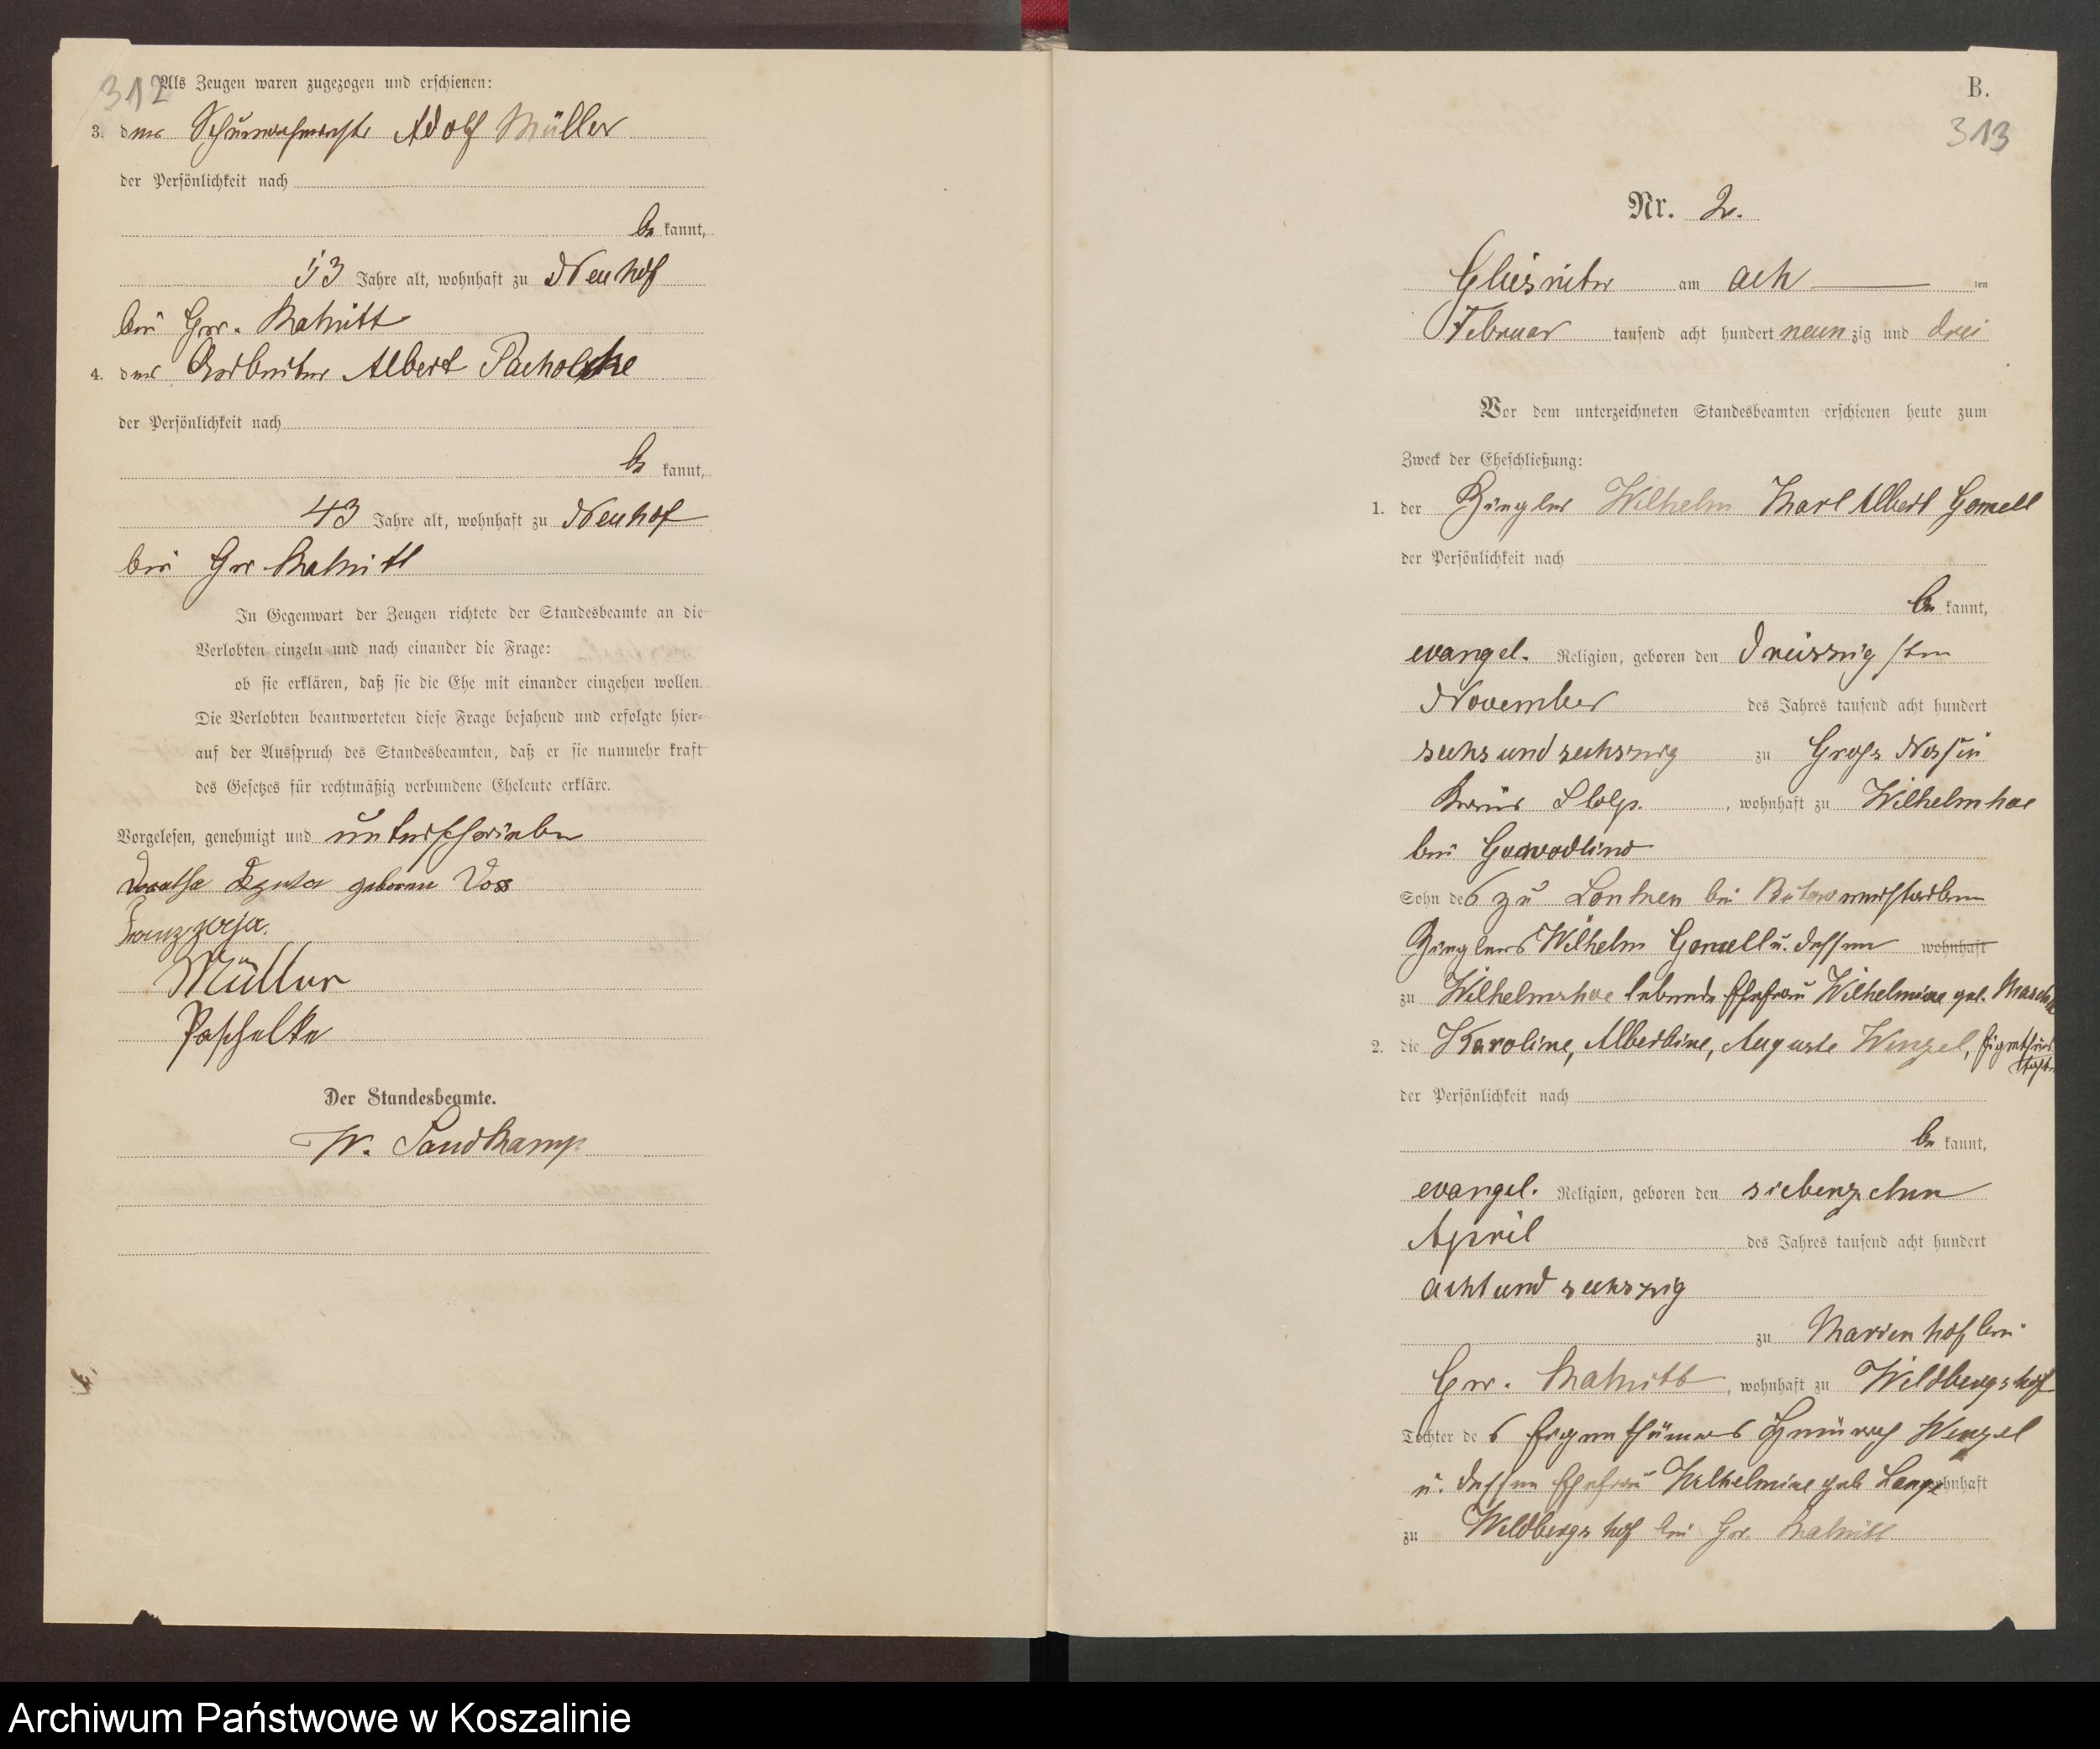 312
Als Zeugen waren zugezogen und erschienen:
3. der Schuhmachermeister Adolf Müller
der Persönlichkeit nach
be kannt,
53 Jahre alt, wohnhaft zu Neuhof
bei Gr.
4. der Arbeiter Albert Pacholcke
der Persönlichkeit nach
be kannt,
43 Jahre alt, wohnhaft zu Neuhof
bei Gr
In Gegenwart der Zeugen richtete der Standesbeamte an die
Verlobten einzeln und nach einander die Frage:
ob sie erklären, daß sie die Ehe mit einander eingehen wollen.
Die Verlobten beantworteten diese Frage bejahend und erfolgte hier-
auf der Ausspruch des Standesbeamten, daß er sie nunmehr kraft
des Gesetzes für rechtmäßig verbundene Eheleute erkläre.
Vorgelesen, genehmigt und unterschrieben
geborene Voss
Franz
Müller
Paschelke
Der Standesbeamte.
W. Sandkamp
B.
313
Nr. 2.
Gliesnitz am ach ten
Februar tausend acht hundert neun zig und drei
Vor dem unterzeichneten Standesbeamten erschienen heute zum
Zweck der Eheschließung:
1. der Ziegler Wilhelm Karl Albert Gomell
der Persönlichkeit nach
be kannt,
evangel. Religion, geboren den dreiszig sten
November des Jahres tausend acht hundert
sechs und sechszig zu Gross Nossin
Kreis Stolp. , wohnhaft zu Wilhelmshoe
bei
Sohn des zu Lonken bei Bütow verstorbenen
Zieglers Wilhelm Gomell u. dessen wohnhaft
zu Wilhelmshoe lebende Ehefrau Wilhelmine geb.
2. die Karoline, Albertine, Auguste Wenzel, Eigenthümer
tochter
der Persönlichkeit nach
be kannt,
evangel. Religion, geboren den siebenzehnn
April des Jahres tausend acht hundert
acht und sechszig
zu Marienhof bei
Gr. , wohnhaft zu Wildbergshof
Tochter des Eigenthümers Heinrich Wenzel
u. dessen Ehefrau Wilhelmine geb Lange wohnhaft
zu Wildbergshof bei Gr.
Archiwum Państwowe w Koszalinie